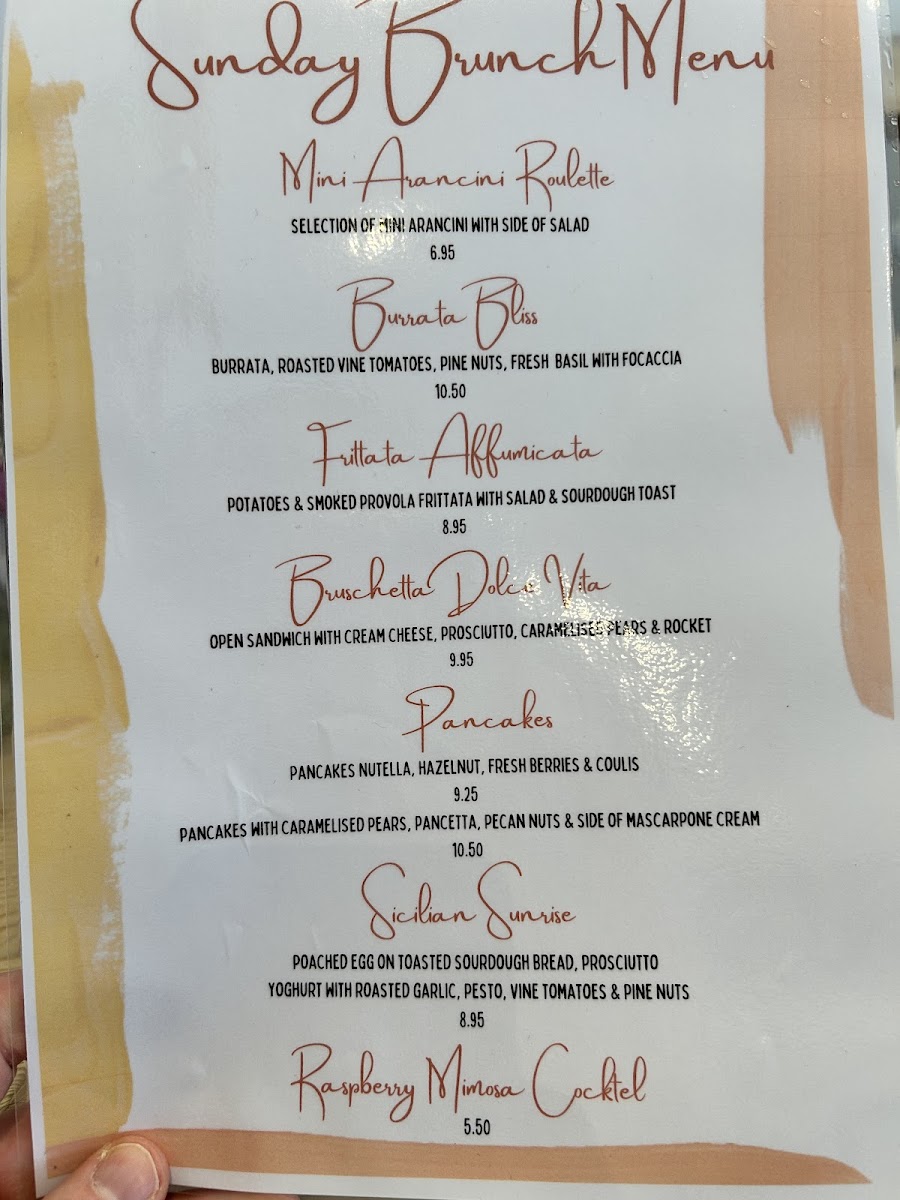 Sunday Brunch Menu
Mini Arancini Roulette
SELECTION OF MINI ARANCINI WITH SIDE OF SALAD
6.95
Burrata Bliss
BURRATA, ROASTED VINE TOMATOES, PINE NUTS, FRESH BASIL WITH FOCACCIA
10.50
Frittata Affumicata
POTATOES & SMOKED PROVOLA FRITTATA WITH SALAD & SOURDOUGH TOAST
8.95
Bruschetta Dolce Vita
OPEN SANDWICH WITH CREAM CHEESE, PROSCIUTTO, CARAMELISED PEARS & ROCKET
9.95
Pancakes
PANCAKES NUTELLA, HAZELNUT, FRESH BERRIES & COULIS
9.25
PANCAKES WITH CARAMELISED PEARS, PANCETTA, PECAN NUTS & SIDE OF MASCARPONE CREAM
10.50
Sicilian Sunrise
POACHED EGG ON TOASTED SOURDOUGH BREAD, PROSCIUTTO
YOGHURT WITH ROASTED GARLIC, PESTO, VINE TOMATOES & PINE NUTS
8.95
Raspberry Mimosa Cocktel
5.50